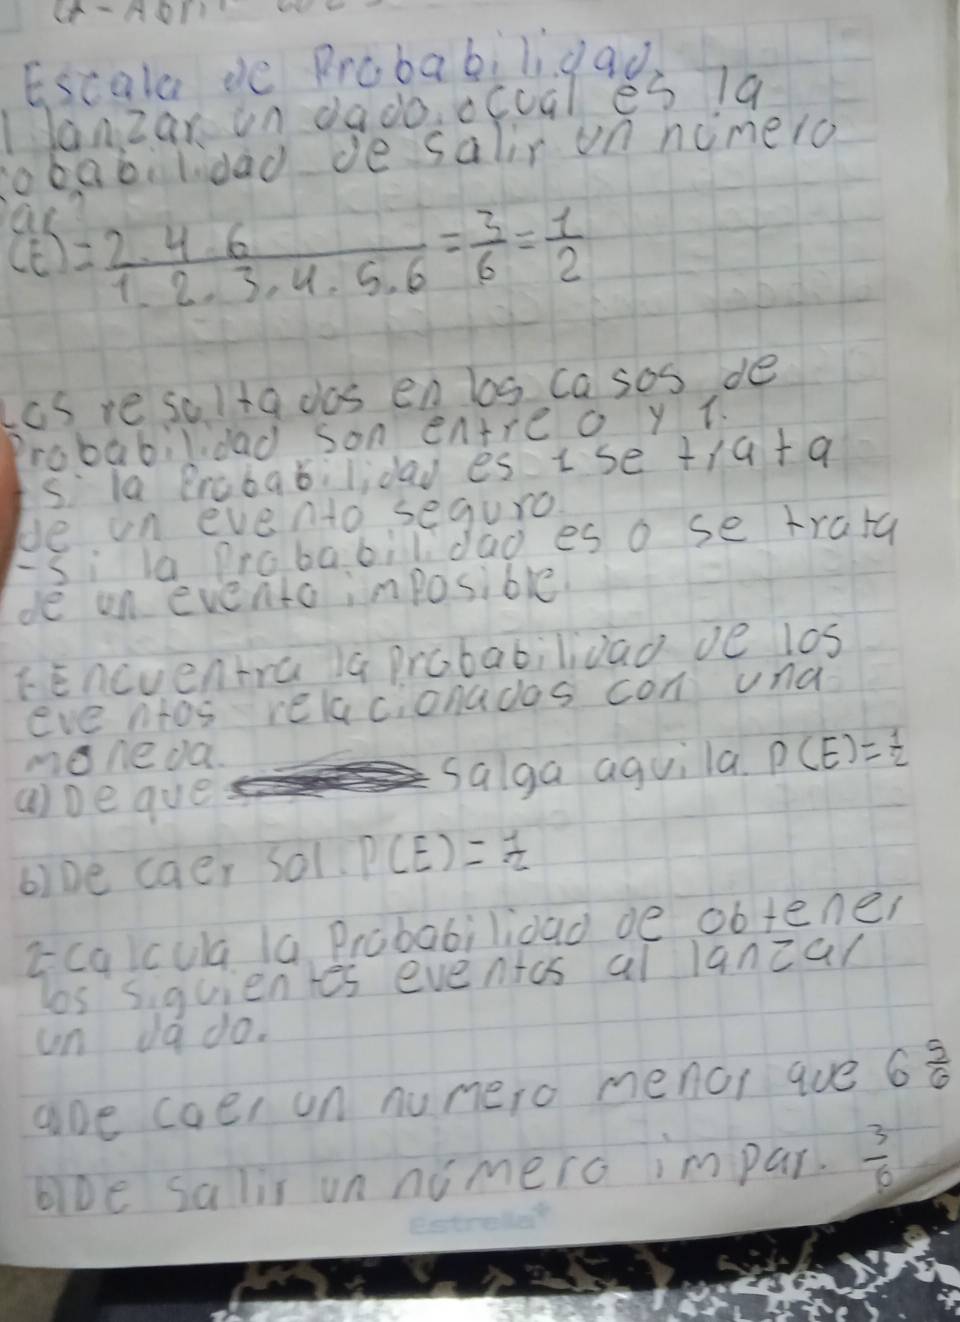 Escala de Probabilidad
lanzar un dado. ¿cual es la
obabilidad de salir un número
ar?
(E)=2.4.6/1.2.3.4.5.6=3/6=1/2
Los resultados en los casos de
Probabilidad son entre 0 y 1.
-si la Probabilidad es 1 se trata
de un evento seguro.
-si la Probabilidad es 0 se trata
de un evento imposible
1-Encuentra la probabilidad de los
eventos relacionados con una
moneda.
a) De que salga aguila. P(E)=1/2
b) De caer sol. P(E)=1/2
2-calcula la Probabilidad de obtener
los siguientes eventos al lanzar
un dado.
a) De caer un numero menor que 6 5/6
b) De salir un número impar. 3/6
Estrella